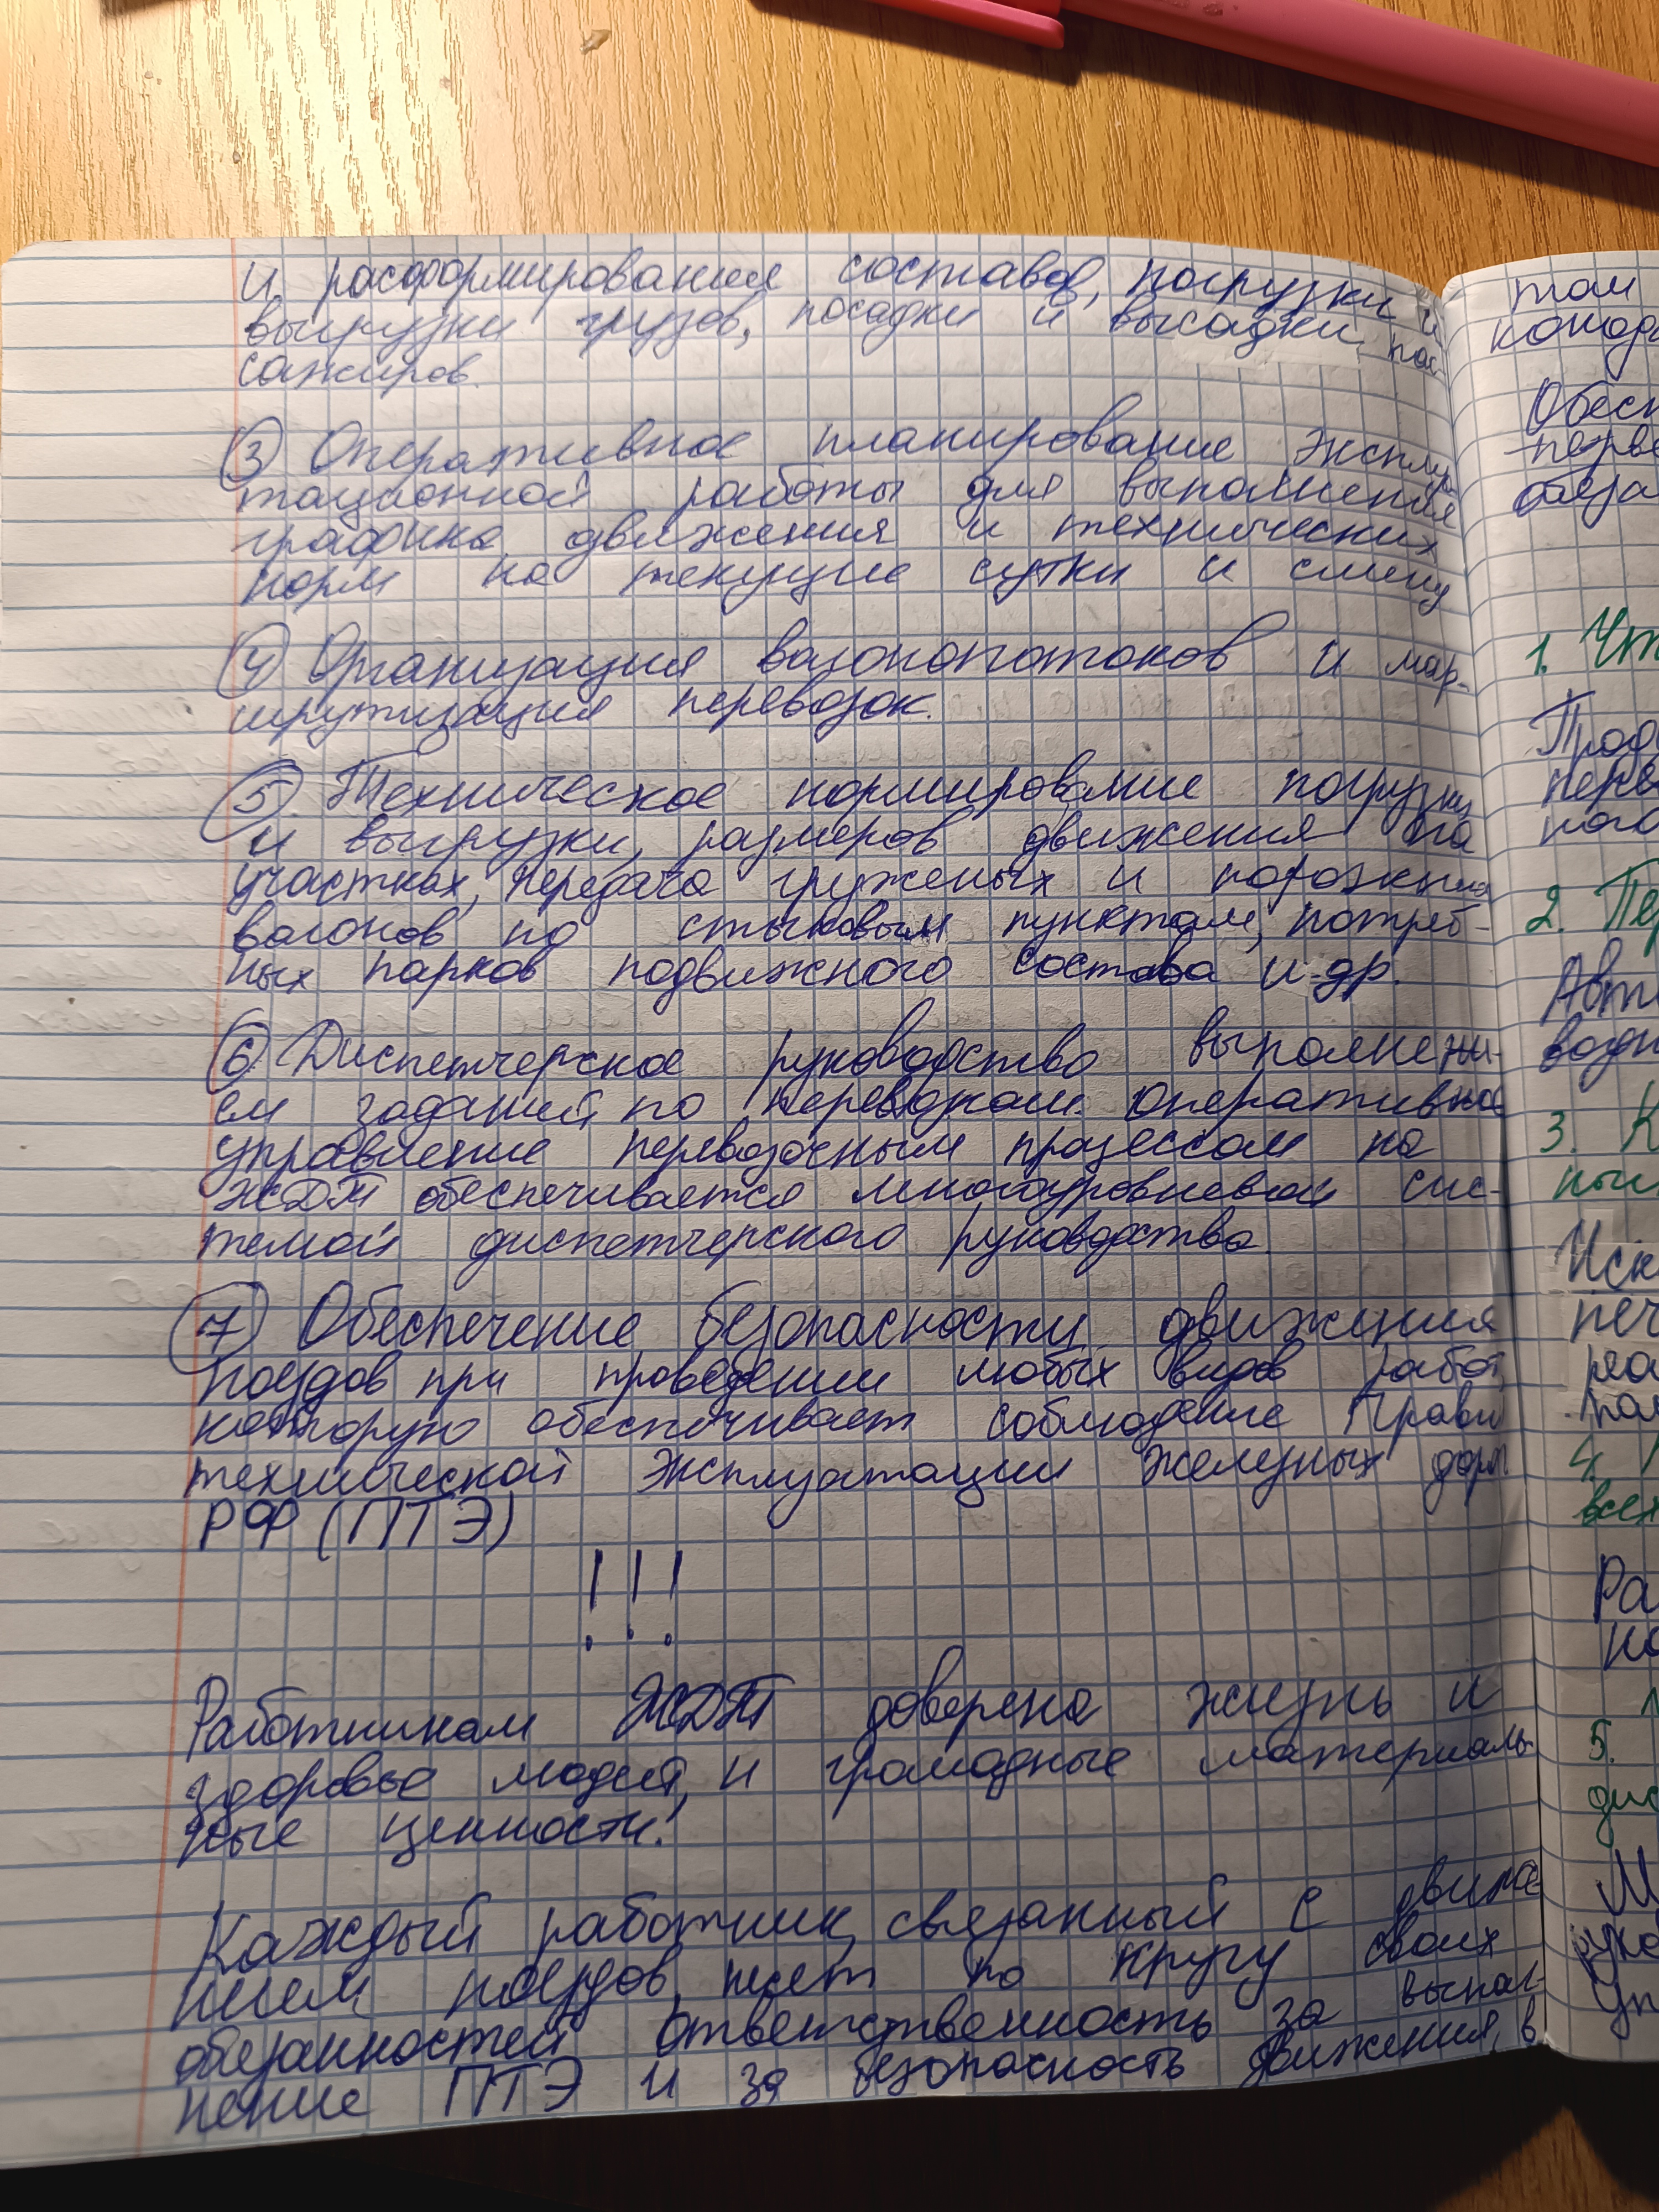 и расформирования составов, погрузки и
выгрузки грузов, посадки и высадки пас-
сажиров.
3 Оперативное планирование эксплуа
тационной работы для выполнения
графика движения и технических
норм на текущие сутки и смену
4 Организация вагонопотоков и мар-
шрутизация перевозок.
5 Техническое нормирование погрузки
и выгрузки, размеров движения на
участках, передача груженых и порожних
вагонов по стыковым пунктам, потреб-
ных парков подвижного состава и др.
6 Диспетчерское руководство выполнени-
ем заданий по перевозкам. Оперативное
управление перевозочным процессом на
ЖДТ обеспечивается многоуровневой сис-
темой диспетчерского руководства.
7 Обеспечение безопасности движения
поездов при проведении любых видов работ,
которую обеспечивает соблюдение Правил
технической эксплуатации железных дорог
РФ (ПТЭ)
!!!
Работникам ЖДТ доверена жизнь и
здоровье людей, и громадные материаль-
ные ценности!
Каждый работник, связанный с движе
нием поездов, несет по кругу своих
обязанностей ответственность за выпол-
нение ПТЭ и за безопасность движения, в
том
Обесп
перве
обяза
1. Чт
Пере
2. Пер
Авт
водн
3. К
ным
Иск
печ
реа
4.
всех
Ра
5.
дис
М
руко
Уп